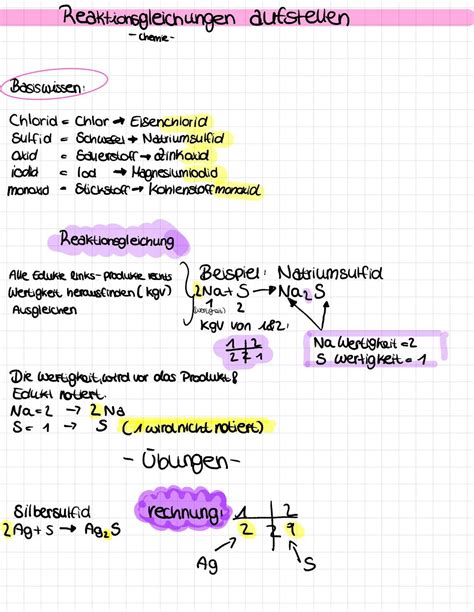 Reaktionsgleichungen aufstellen
- Chemie -
Basiswissen:
Chlorid = Chlor → Eisenchlorid
Sulfid = Schwefel → Natriumsulfid
oxid = Sauerstoff → Zinkoxid
iodid = Iod → Magnesiumiodid
monoxid = Stickstoff → Kohlenstoffmonoxid
Reaktionsgleichung
Alle Edukte links - Produkte rechts
Wertigkeit herausfinden (kgV)
Ausgleichen
Beispiel: Natriumsulfid
2Na + S → Na2S
1 2
(Wertigkeit)
KgV von 1&2:
1 | 2
2 2 1
Na Wertigkeit = 2
S Wertigkeit = 1
Die Wertigkeit, wird vor das Produkt &
Edukt notiert.
Na = 2 → 2 Na
S = 1 → S (1 wird nicht notiert)
- Übungen -
Silbersulfid
2Ag + S → Ag2S
rechnung:
1 | 2
2 2 1
Ag S